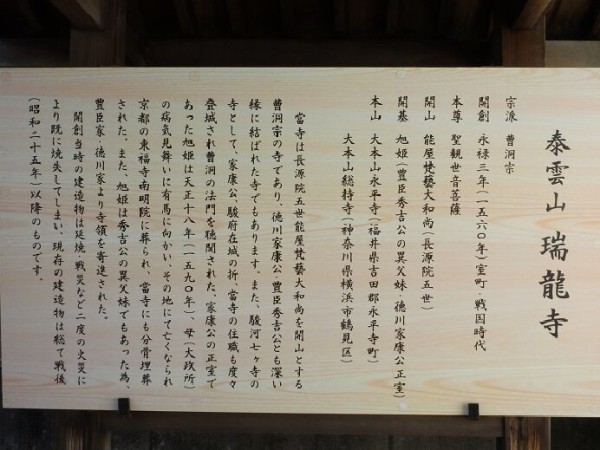 泰雲山 瑞龍寺
宗派 曹洞宗
開創 永禄三年(一五六〇年)室町・戦国時代
本尊 聖観世音菩薩
開山 能屋梵藝大和尚(長源院五世)
開基 旭姫(豊臣秀吉公の異父妹・徳川家康公正室)
本山 大本山永平寺(福井県吉田郡永平寺町)
大本山総持寺(神奈川県横浜市鶴見区)
當寺は長源院五世能屋梵藝大和尚を開山とする
曹洞宗の寺であり、徳川家康公・豊臣秀吉公とも深い
縁に結ばれた寺でもあります。また、駿河七ヶ寺の
寺として、家康公、駿府在城の折、當寺の住職も度々
登城され曹洞の法門を聴聞された。家康公の正室で
あった旭姫は天正十八年(一五九〇年)、母(大政所)
の病気見舞いに有馬に向かい、その地にて亡くなられ
京都の東福寺南明院に葬られ、當寺にも分骨埋葬
された。また、旭姫は秀吉公の異父妹でもあった為、
豊臣家・徳川家より寺領を寄進された。
開創当時の建造物は延焼・戦災など二度の火災に
より既に焼失してしまい、現存の建造物は総て戦後
(昭和二十五年)以降のものです。